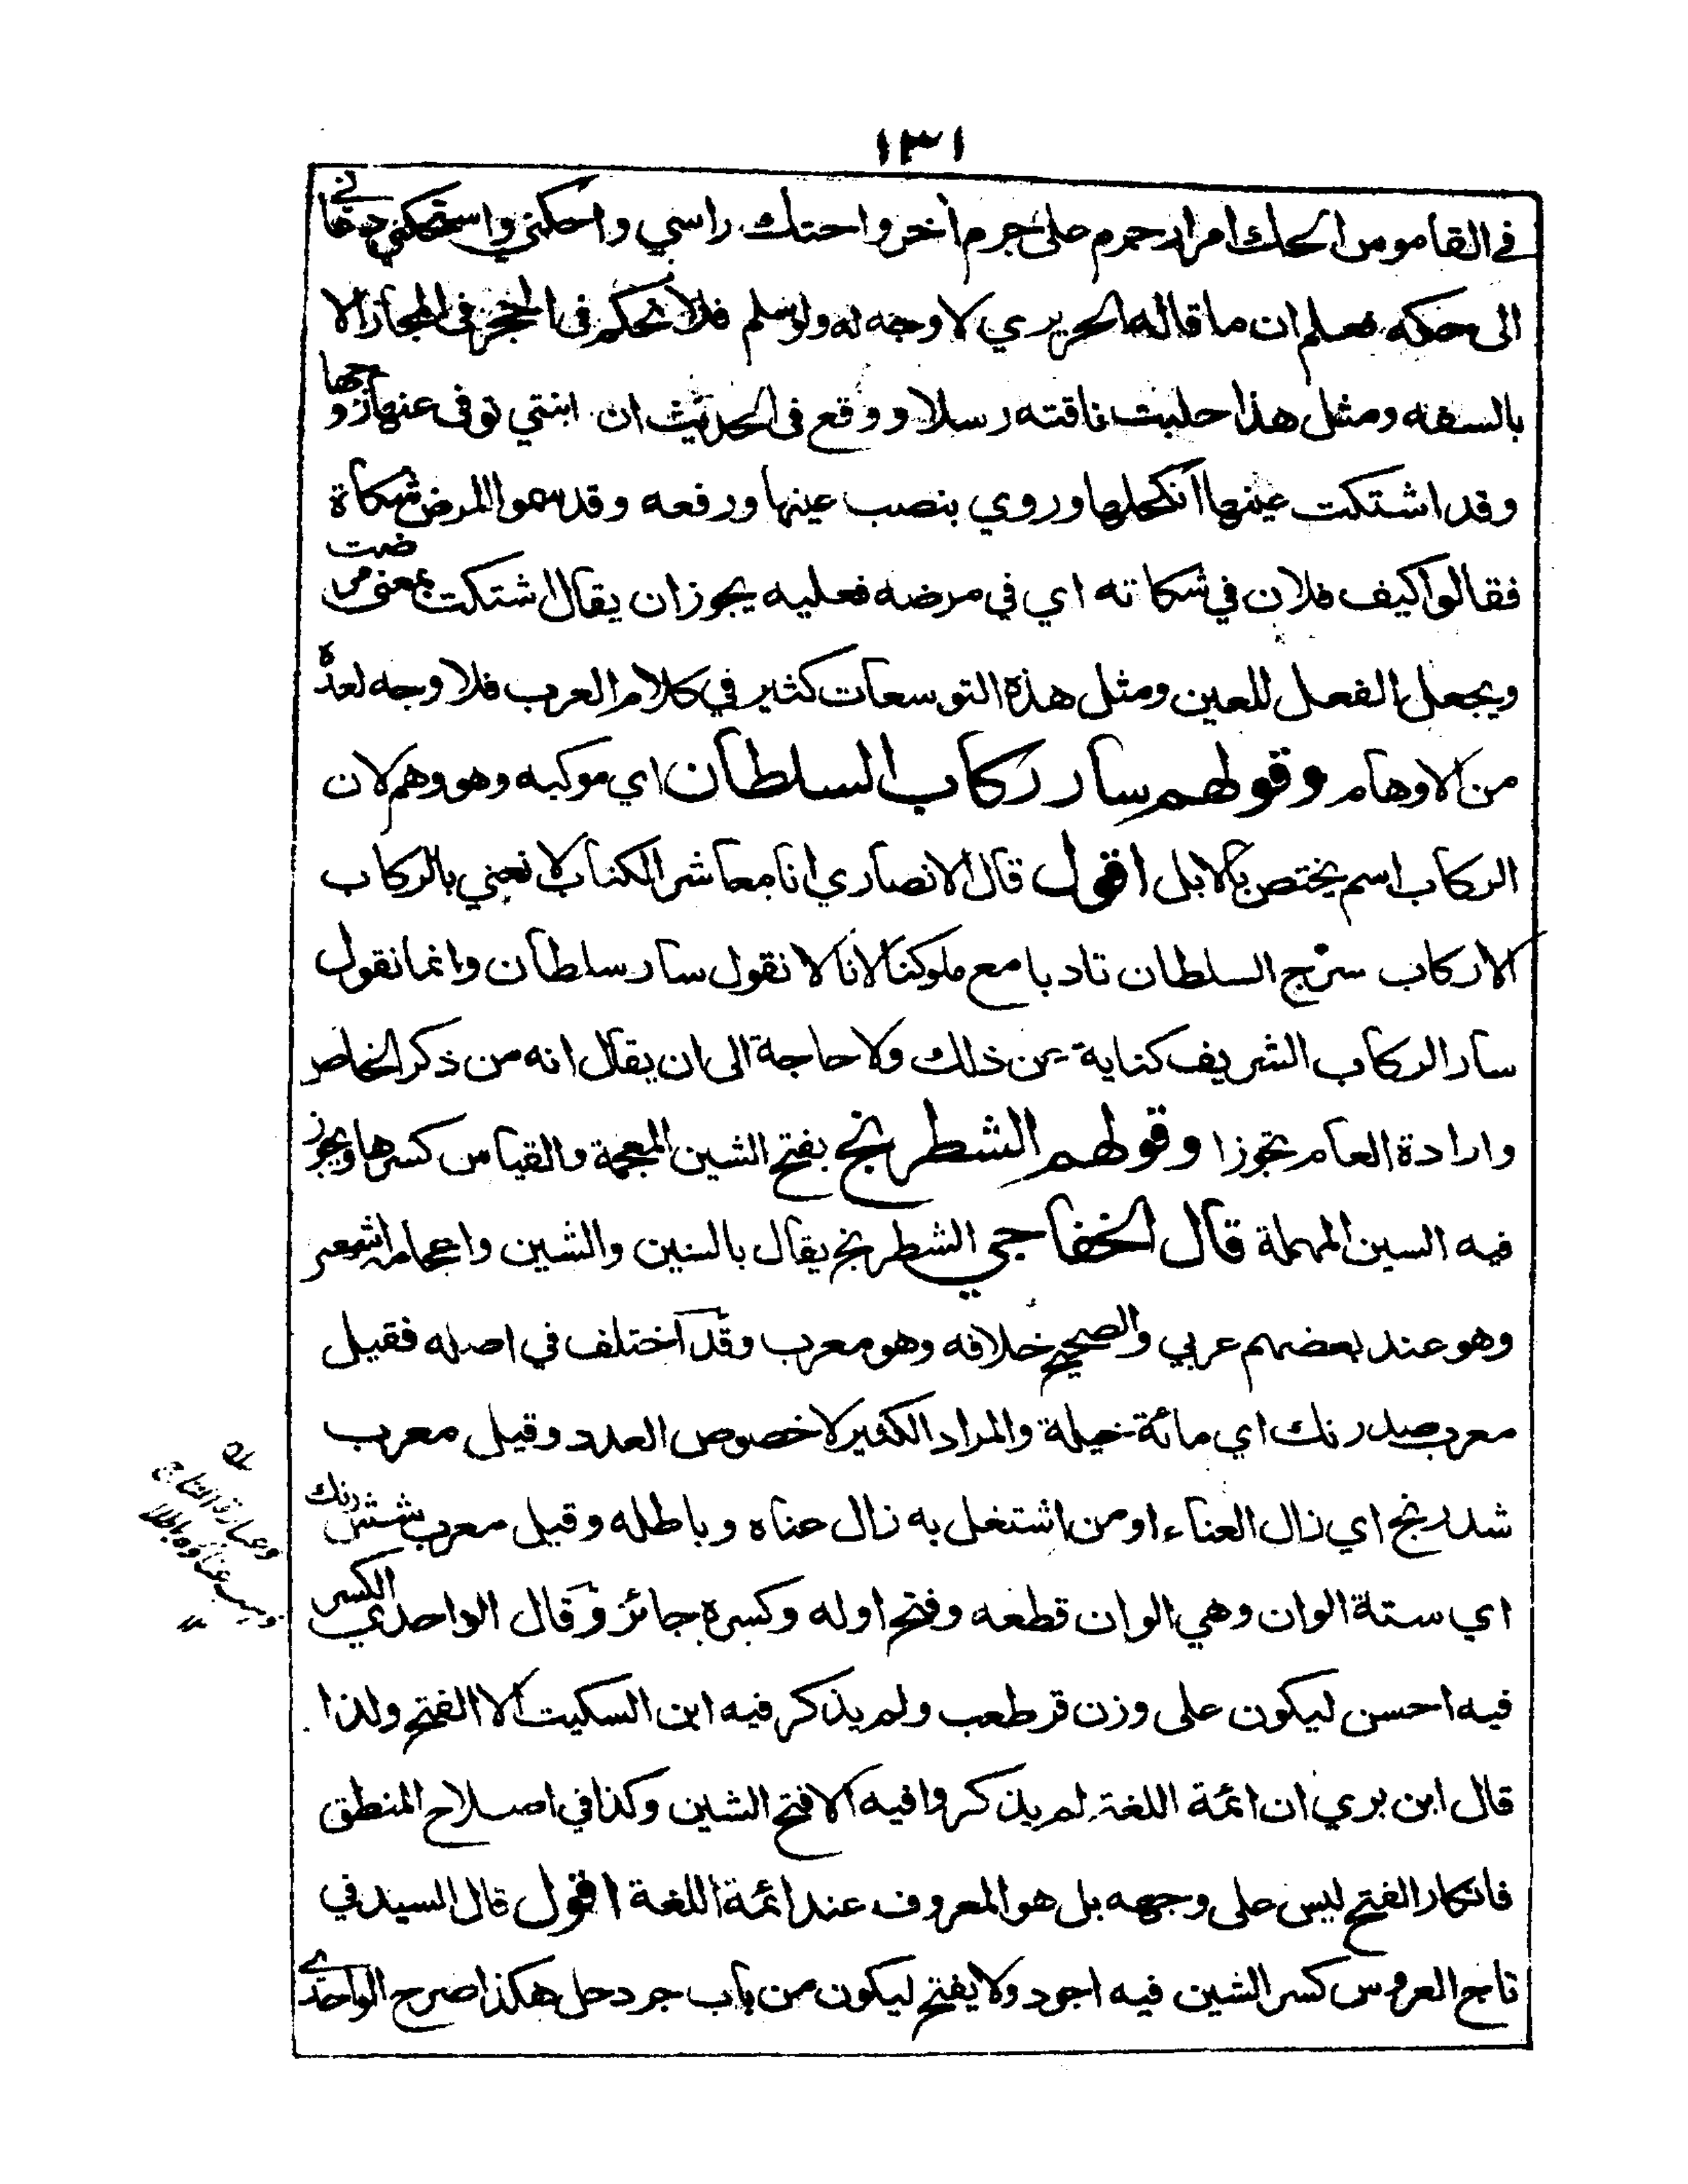 ١٣١
في القاموس الحك امرار جرم على جرم آخر واحتك راسي واحكني واستحكني دعاني
الى حكه فعلم ان ما قاله الحريري لا وجه له ولو سلم فلا تحكم في الحجر في المجاز الا
بالسفه ومثل هذا حلبت ناقته رسلا ووقع في الحديث ان ابنتي توفى عنها زوجها
وقد اشتكت عينها انكحلها وروي بنصب عينها ورفعه وقد سموا المرض شكاة
فقالوا كيف فلان في شكاته اي في مرضه فعليه يجوز ان يقال اشتكت بمعنى مرضت
ويجعل الفعل للعين ومثل هذه التوسعات كثير في كلام العرب فلا وجه لعده
من الاوهام وقولهم سار ركاب السلطان اي موكبه وهو وهم لان
الركاب اسم يختص بالابل اقول قال الانصاري انا معاشر الكتاب لا نعني بالركاب
الا ركاب سرج السلطان تادبا مع ملوكنا لانا لا نقول سار سلطان وانما نقول
سار الركاب الشريف كناية عن ذلك ولا حاجة الى ان يقال انه من ذكر الخاص
وارادة العام تجوزا وقولهم الشطرنج بفتح الشين المعجمة والقياس كسرها ويجوز
فيه السين المهملة قال الخفاجي الشطرنج يقال بالسين والشين واعجامه اشهر
وهو عند بعضهم عربي والصحيح خلافه وهو معرب وقد اختلف في اصله فقيل
معرب صدرنك اي مائة حيلة والمراد الكثير لا خصوص العدد وقيل معرب
شدرنج اي زال العناء او من اشتغل به زال عناه وباطله وقيل معرب شش رنك
اي ستة الوان وهي الوان قطعه وفتح اوله وكسره جائز وقال الواحدي الكسر
فيه احسن ليكون على وزن قرطعب ولم يذكر فيه ابن السكيت الا الفتح ولذا
قال ابن بري ان ائمة اللغة لم يذكروا فيه الا فتح الشين وكذا في اصلاح المنطق
فانكار الفتح ليس على وجهه بل هو المعروف عند ائمة اللغة اقول قال السيد في
تاج العروس كسر الشين فيه اجود ولا يفتح ليكون من باب جردحل هكذا صرح الواحدي
وعبارة التاج